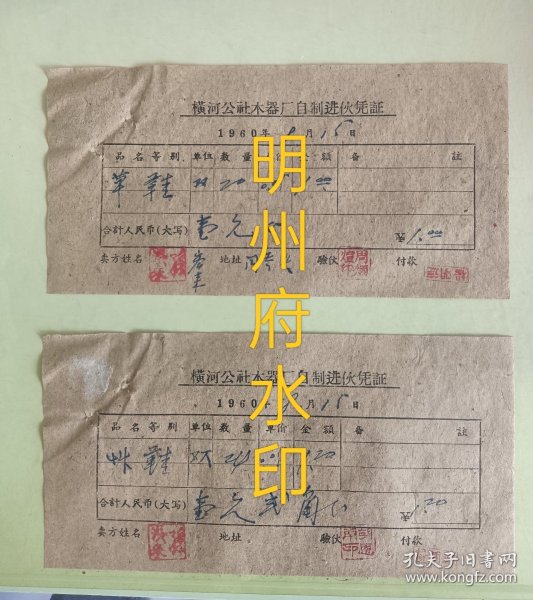 橫河公社木器厂自制进伙凭証
1960年 9月15日
品名等别 单位 数量 单价 金額 备 註
草鞋 双 20 1.00
合計人民币(大写) 壹元 1.00
卖方姓名 地址 驗伙 付款
橫河公社木器厂自制进伙凭証
1960年 月15日
品名等别 单位 数量 单价 金額 备 註
草鞋 双 24 1.20
合計人民币(大写) 壹元弍角 1.20
卖方姓名 地址 驗伙 付款
明州府水印
孔夫子旧书网
www.kongfz.com